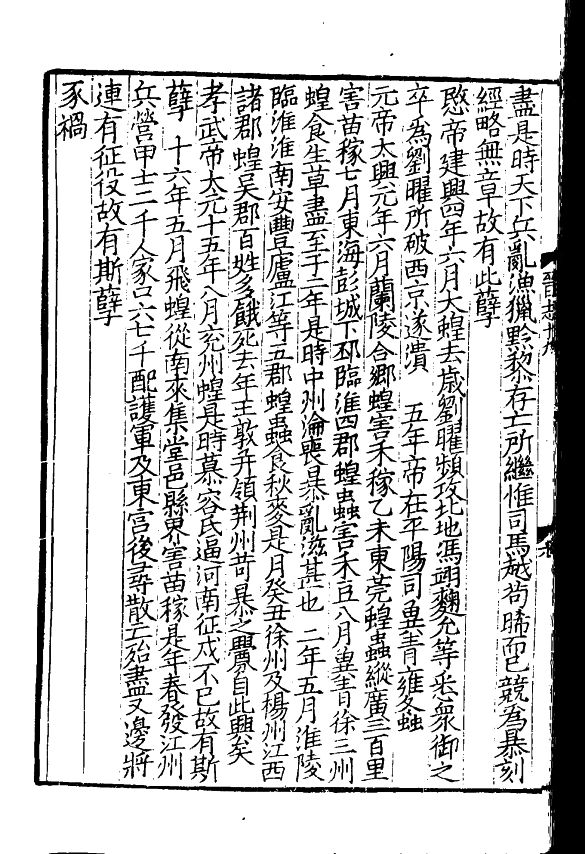 盡是時天下兵亂漁獵黔黎存亡所繼惟司馬越苟晞而已競為暴刻
經略無章故有此孽
愍帝建興四年六月大蝗去歲劉曜頻攻北地馮翊麴允等悉衆御之
卒為劉曜所破西京遂潰　五年帝在平陽司冀青雍螽
元帝大興元年六月蘭陵合鄉蝗害禾稼乙未東莞蝗蟲縱廣三百里
害苗稼七月東海彭城下邳臨淮四郡蝗蟲害禾豆八月冀青徐三州
蝗食生草盡至于二年是時中州淪喪暴亂滋甚也　二年五月淮陵
臨淮淮南安豐廬江等五郡蝗蟲食秋麥是月癸丑徐州及楊州江西
諸郡蝗吳郡百姓多餓死去年王敦并領荆州苛暴之釁自此興矣
孝武帝太元十五年八月兗州蝗是時慕容氏逼河南征戍不已故有斯
孽　十六年五月飛蝗從南來集堂邑縣界害苗稼是年春發江州
兵營甲士二千人家口六七千配護軍及東宮後尋散亡殆盡又邊將
連有征役故有斯孽
豕禍